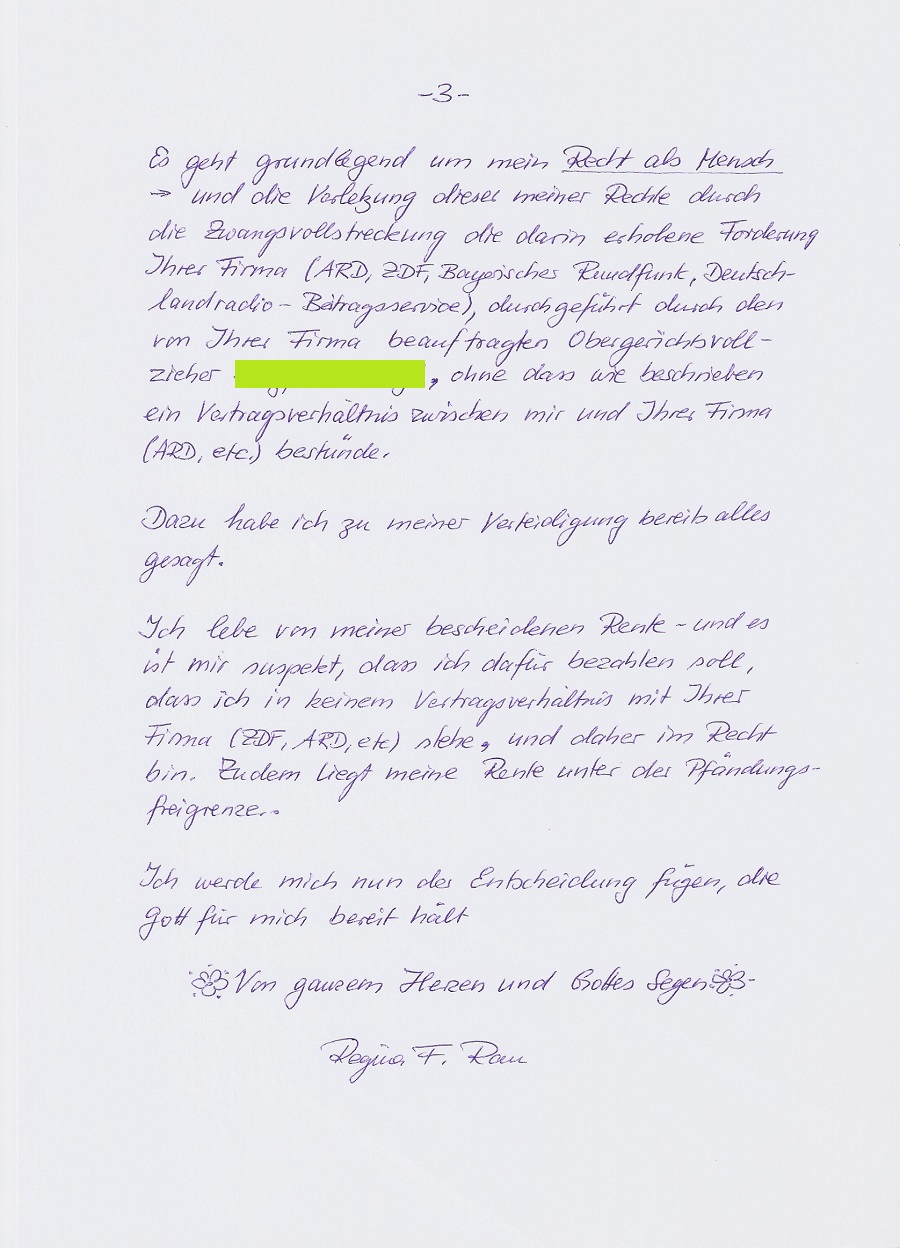 -3-
Es geht grundlegend um mein Recht als Mensch
→ und die Verletzung dieser meiner Rechte durch
die Zwangsvollstreckung die darin erhobene Forderung
Ihrer Firma (ARD, ZDF, Bayerisches Rundfunk, Deutsch-
landradio - Beitragsservice), durchgeführt durch den
von Ihrer Firma beauftragten Obergerichtsvoll-
zieher , ohne dass wie beschrieben
ein Vertragsverhältnis zwischen mir und Ihrer Firma
(ARD, etc.) bestünde.
Dazu habe ich zu meiner Verteidigung bereits alles
gesagt.
Ich lebe von meiner bescheidenen Rente - und es
ist mir suspekt, dass ich dafür bezahlen soll,
dass ich in keinem Vertragsverhältnis mit Ihrer
Firma (ZDF, ARD, etc) stehe, und daher im Recht
bin. Zudem liegt meine Rente unter der Pfändungs-
freigrenze.
Ich werde mich nun der Entscheidung fügen, die
Gott für mich bereit hält
Von ganzem Herzen und Gottes Segen
Regina F. Rau